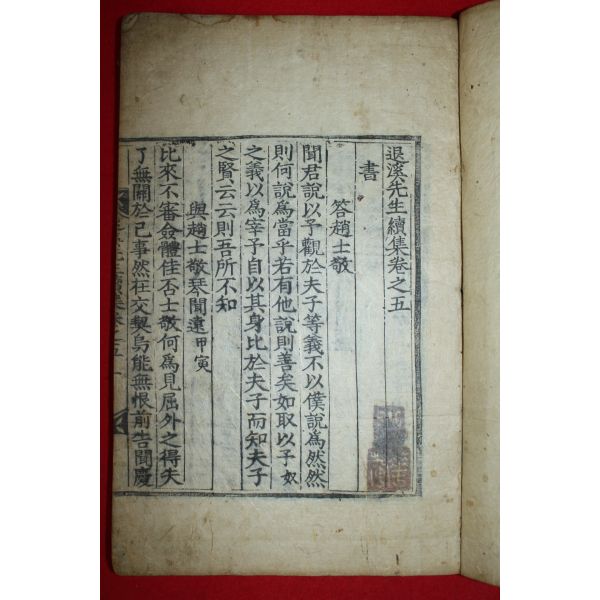 退溪先生續集卷之五
書
答趙士敬
聞君說以予觀於夫子等義不以僕說爲然然
則何說爲當乎若有他說則善矣如取以予奴
之義以爲宰予自以其身比於夫子而知夫子
之賢云云則吾所不知
與趙士敬琴聞遠甲寅
比來不審僉體佳否士敬何爲見屈外之得失
了無關於己事然在交契烏能無恨前告聞慶